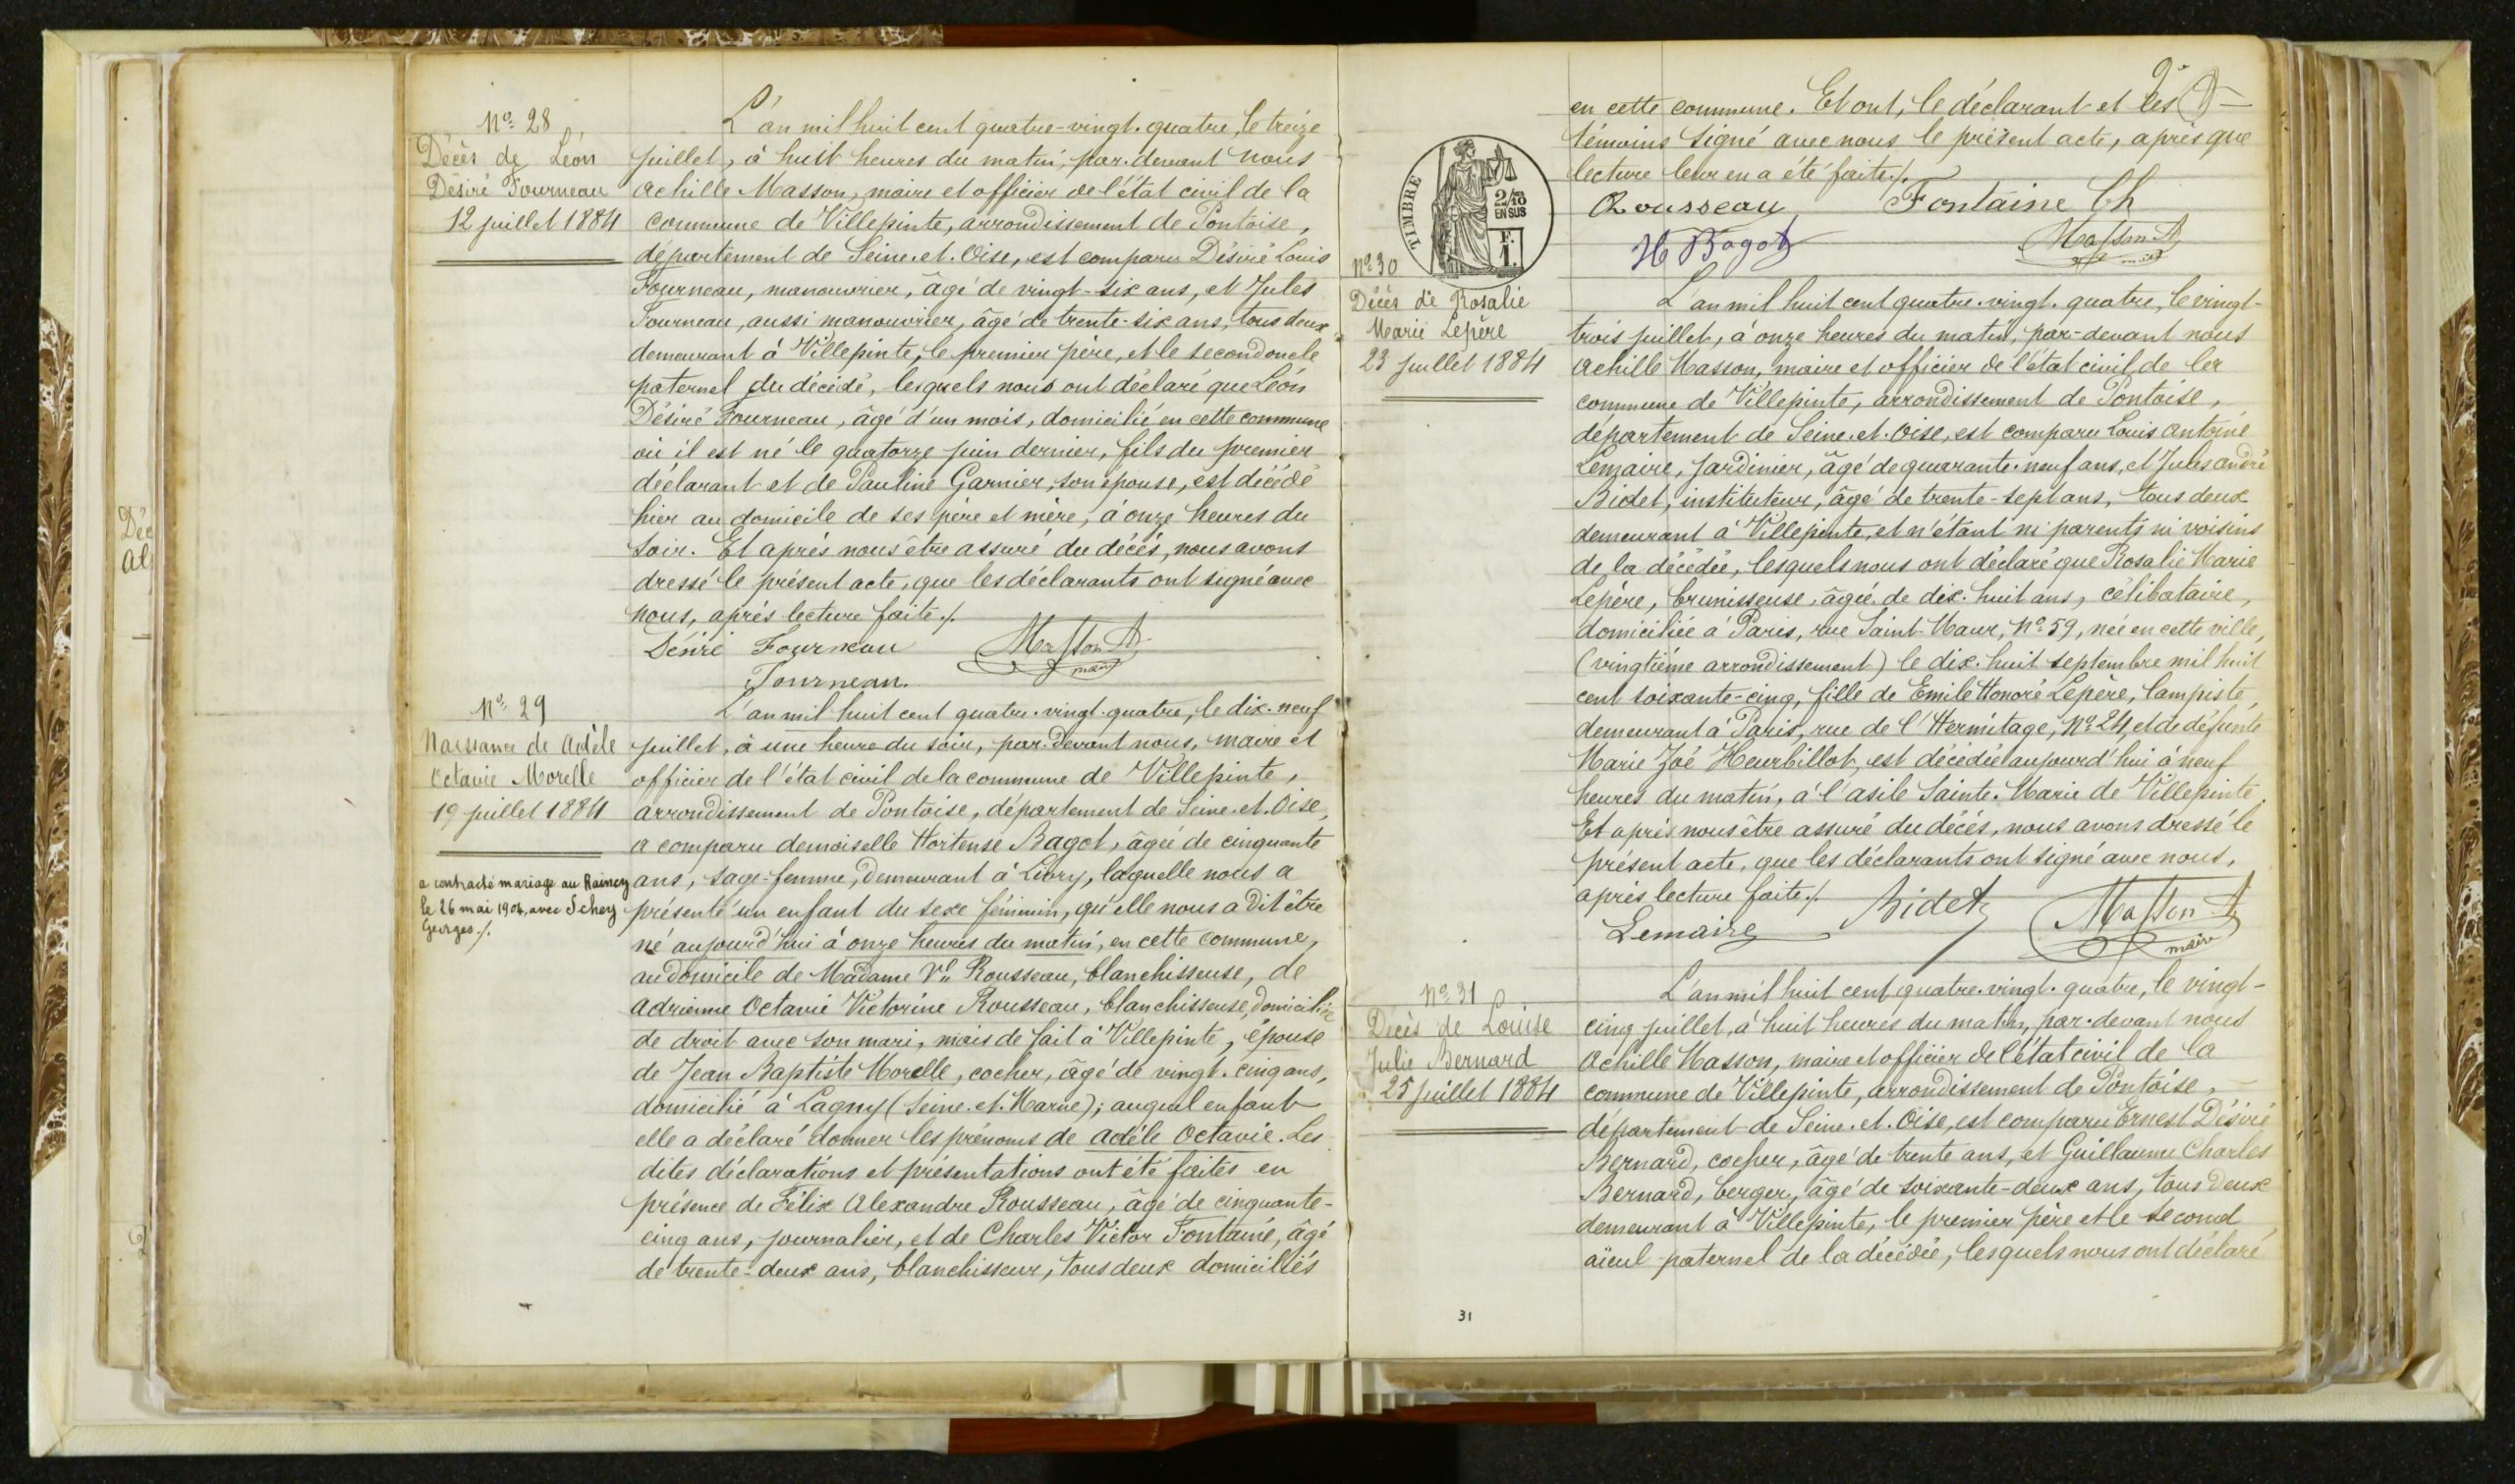 Déc
Al
Nº 28
Décès de Léon
Désiré Fourneau
12 juillet 1884
L'an mil huit cent quatre-vingt-quatre, le treize
juillet, à huit heures du matin, par-devant nous
Achille Masson, maire et officier de l'état civil de la
commune de Villepinte, arrondissement de Pontoise,
département de Seine-et-Oise, est comparu Désiré Louis
Fourneau, manouvrier, âgé de vingt-six ans, et Jules
Fourneau, aussi manouvrier, âgé de trente-six ans, tous deux
demeurant à Villepinte, le premier père, et le second oncle
paternel du décédé, lesquels nous ont déclaré que Léon
Désiré Fourneau, âgé d'un mois, domicilié en cette commune
où il est né le quatorze juin dernier, fils du premier
déclarant et de Pauline Garnier, son épouse, est décédé
hier au domicile de ses père et mère, à onze heures du
soir. Et après nous être assuré du décès, nous avons
dressé le présent acte, que les déclarants ont signé avec
nous, après lecture faite ./.
Désiré Fourneau Masson A
maire
Fourneau.
Nº 29
Naissance de Adèle
Octavie Morelle
19 juillet 1884
a contracté mariage au Raincy
le 26 mai 1904, avec Schey
Georges ./.
L'an mil huit cent quatre-vingt-quatre, le dix-neuf
juillet, à une heure du soir, par-devant nous, maire et
officier de l'état civil de la commune de Villepinte,
arrondissement de Pontoise, département de Seine-et-Oise,
a comparu demoiselle Hortense Bagot, âgée de cinquante
ans, sage-femme, demeurant à Livry, laquelle nous a
présenté un enfant du sexe féminin, qu'elle nous a dit être
né aujourd'hui à onze heures du matin, en cette commune,
au domicile de Madame Vve Rousseau, blanchisseuse, de
Adrienne Octavie Victorine Rousseau, blanchisseuse, domiciliée
de droit avec son mari, mais de fait à Villepinte, épouse
de Jean Baptiste Morelle, cocher, âgé de vingt-cinq ans,
domicilié à Lagny (Seine-et-Marne); auquel enfant
elle a déclaré donner les prénoms de Adèle Octavie. Les
dites déclarations et présentations ont été faites en
présence de Félix Alexandre Rousseau, âgé de cinquante-
cinq ans, journalier, et de Charles Victor Fontaine, âgé
de trente-deux ans, blanchisseur, tous deux domiciliés
en cette commune. Et ont, le déclarant et les
témoins signé avec nous le présent acte, après que
lecture leur en a été faite ./.
Rousseau Fontaine Ch
H Bagot Masson A
maire
TIMBRE
2/10
EN SUS
F.
1.
Nº 30
Décès de Rosalie
Marie Lepère
23 juillet 1884
L'an mil huit cent quatre-vingt-quatre, le vingt-
trois juillet, à onze heures du matin, par-devant nous
Achille Masson, maire et officier de l'état civil de la
commune de Villepinte, arrondissement de Pontoise,
département de Seine-et-Oise, est comparu Louis Antoine
Lemaire, jardinier, âgé de quarante-neuf ans, et Jules André
Bidet, instituteur, âgé de trente-sept ans, tous deux
demeurant à Villepinte, et n'étant ni parents ni voisins
de la décédée, lesquels nous ont déclaré que Rosalie Marie
Lepère, brunisseuse, âgée de dix-huit ans, célibataire,
domiciliée à Paris, rue Saint-Maur, Nº 59, née en cette ville,
(vingtième arrondissement) le dix-huit septembre mil huit
cent soixante-cinq, fille de Emile Honoré Lepère, lampiste,
demeurant à Paris, rue de l'Hermitage, Nº 24, et de défunte
Marie Zoé Heurbillot, est décédée aujourd'hui à neuf
heures du matin, à l'asile Sainte-Marie de Villepinte.
Et après nous être assuré du décès, nous avons dressé le
présent acte, que les déclarants ont signé avec nous,
après lecture faite ./.
Lemaire Bidet Masson A
maire
Nº 31
Décès de Louise
Julie Bernard
25 juillet 1884
L'an mil huit cent quatre-vingt-quatre, le vingt-
cinq juillet, à huit heures du matin, par-devant nous
Achille Masson, maire et officier de l'état civil de la
commune de Villepinte, arrondissement de Pontoise,
département de Seine-et-Oise, est comparu Ernest Désiré
Bernard, cocher, âgé de trente ans, et Guillaume Charles
Bernard, berger, âgé de soixante-deux ans, tous deux
demeurant à Villepinte, le premier père et le second
aïeul paternel de la décédée, lesquels nous ont déclaré
31